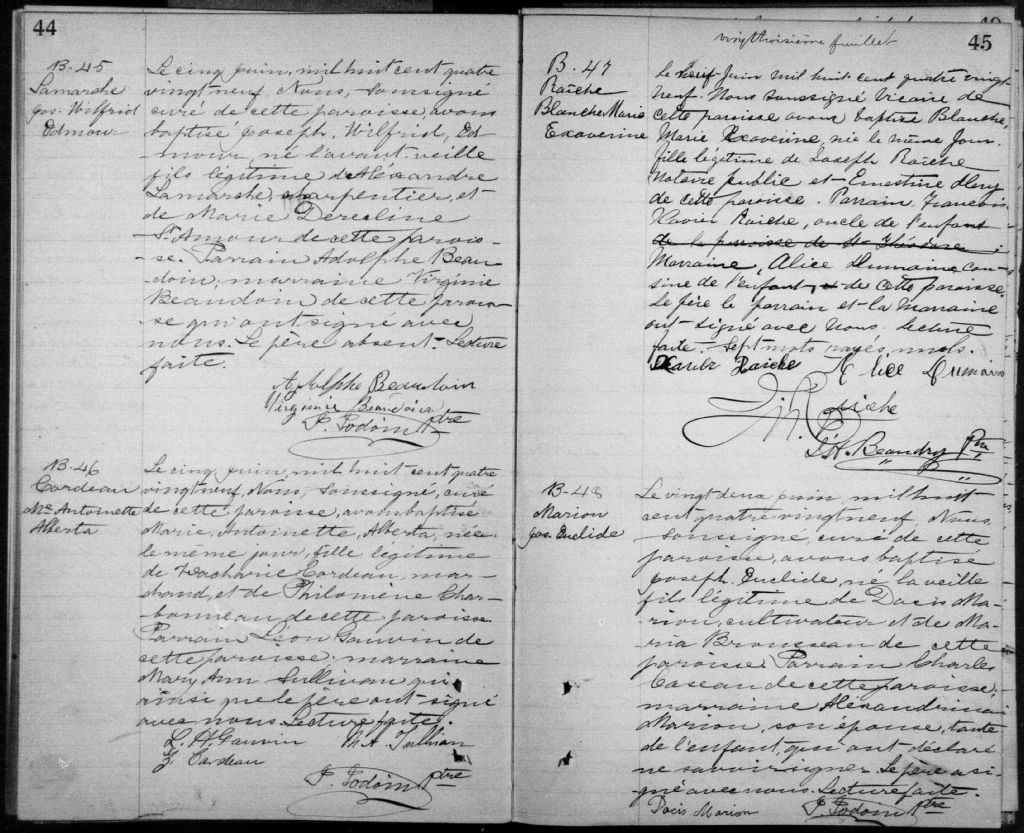 44
B-45
Lamarche
Jos. Wilfrid
Edmour
Le cinq juin, mil huit cent quatre
vingt neuf, Nous, soussigné
curé de cette paroisse, avons
baptisé Joseph, Wilfrid, Ed-
-mour, né l'avant-veille
fils légitime d'Alexandre
Lamarche, charpentier, et
de Marie Dereline
St Amour de cette parois-
-se. Parrain Adolphe Beau-
doin; marraine Virginie
Beaudoin de cette parois-
-se qui ont signé avec
nous. Le père absent. Lecture
faite.
Adolphe Beaudoin
Virginie Beaudoin
P. Jodoin Ptre
B-46
Cordeau
Me Antoinette
Alberta
Le cinq juin, mil huit cent quatre
vingt neuf, Nous, soussigné, curé
de cette paroisse, avons baptisé
Marie, Antoinette, Alberta, née
le même jour, fille légitime
de Zacharie Cordeau, mar-
-chand, et de Philomène Char-
-bonneau de cette paroisse.
Parrain Léon Gauvin de
cette paroisse; marraine
Mary Ann Sullivan qui
ainsi que le père ont signé
avec nous. Lecture faite.
L. H. Gauvin M. A. Sullivan
Z. Cordeau
P. Jodoin Ptre
vingt troisième feuillet
45
B. 47
Raîche
Blanche Marie
Exaverine
Le neuf Juin mil huit cent quatre vingt
neuf. Nous soussigné Vicaire de
cette paroisse avons baptisé Blanche,
Marie Exaverine, née le même jour.
fille légitime de Joseph Raîche
Notaire public et Ernestine
de cette paroisse. Parrain, François
Xavier Raiche, oncle de l'enfant
de la paroisse de Ste
Marraine, Alice Dumaine, cou-
sine de l'enfant, de cette paroisse.
Le père le parrain et la Marraine
ont signé avec Nous. Lecture
faite. - Sept mots rayés, nuls.
Xavier Raiche Alice Dumaine
Raiche
Beaudry Ptre
B-48
Marion
Jos. Euclide
Le vingt deux juin mil huit
cent quatre vingt neuf, Nous,
soussigné, curé de cette
paroisse, avons baptisé
Joseph, Euclide, né la veille
fils légitime de Docis Ma-
-rion, cultivateur et de Ma-
-ria Brousseau de cette
paroisse. Parrain Charles
Caseau de cette paroisse;
marraine Alexandrina
Marion, son épouse, tante
de l'enfant, qui ont déclaré
ne savoir signer. Le père a si-
-gné avec nous. Lecture faite.
Docis Marion P. Jodoin Ptre